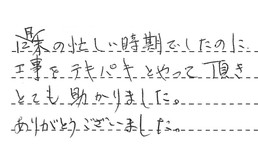 の忙しい時期でしたのに
工事をテキパキとやって頂き
とても助かりました。
ありがとうございました。